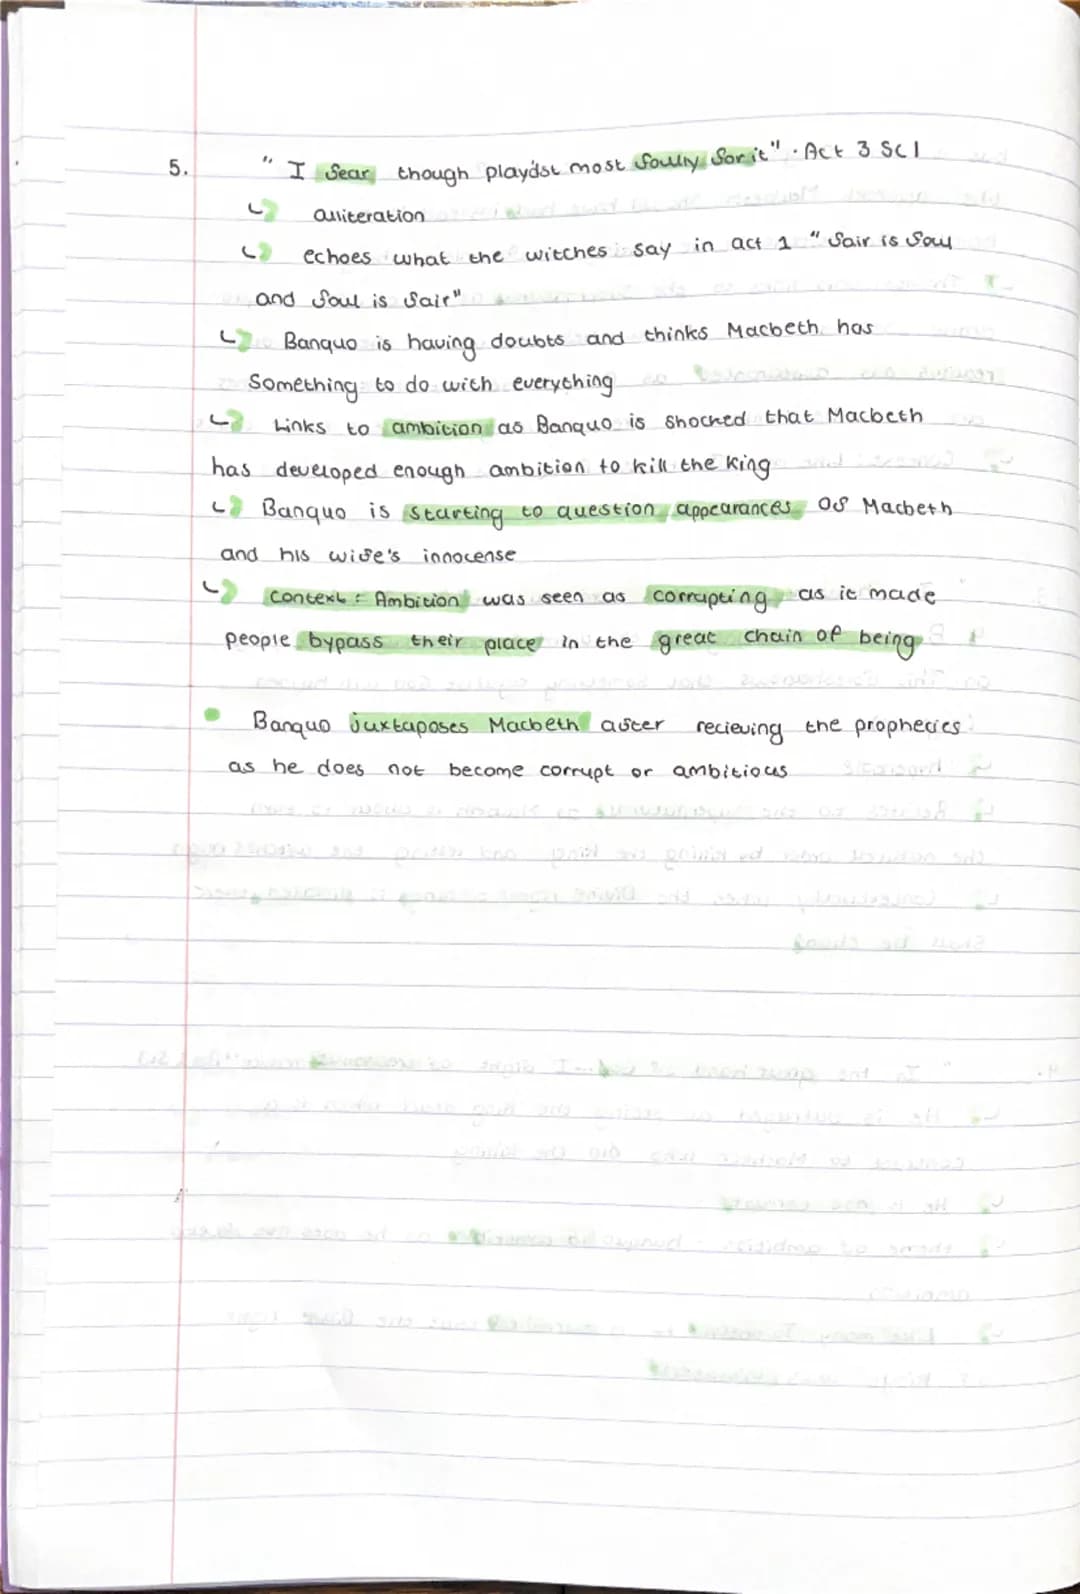 5. " I fear though playdst most foully for it" . Act 3 Sc 1
↳ alliteration
↳ echoes what the witches say in act 1 " fair is foul
and foul is fair"
↳ Banquo is having doubts and thinks Macbeth has
Something to do with everything
↳ Links to ambition as Banquo is shocked that Macbeth
has developed enough ambition to kill the King
↳ Banquo is starting to question appearances of Macbeth
and his wife's innocense
↳ context : Ambition was seen as corrupting as it made
people bypass their place in the great chain of being
• Banquo juxtaposes Macbeth after recieving the prophecies
as he does not become corrupt or ambitious